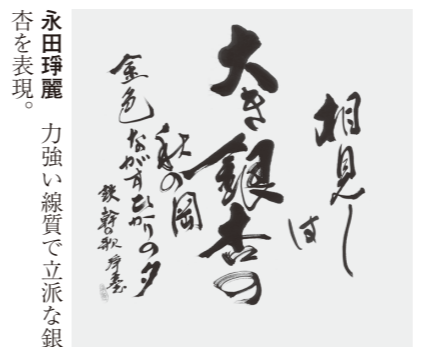 相見し
は
大き銀杏の
秋の岡
金色ながすひかりの夕
鉄幹歌
永田琤麗　力強い線質で立派な銀
杏を表現。